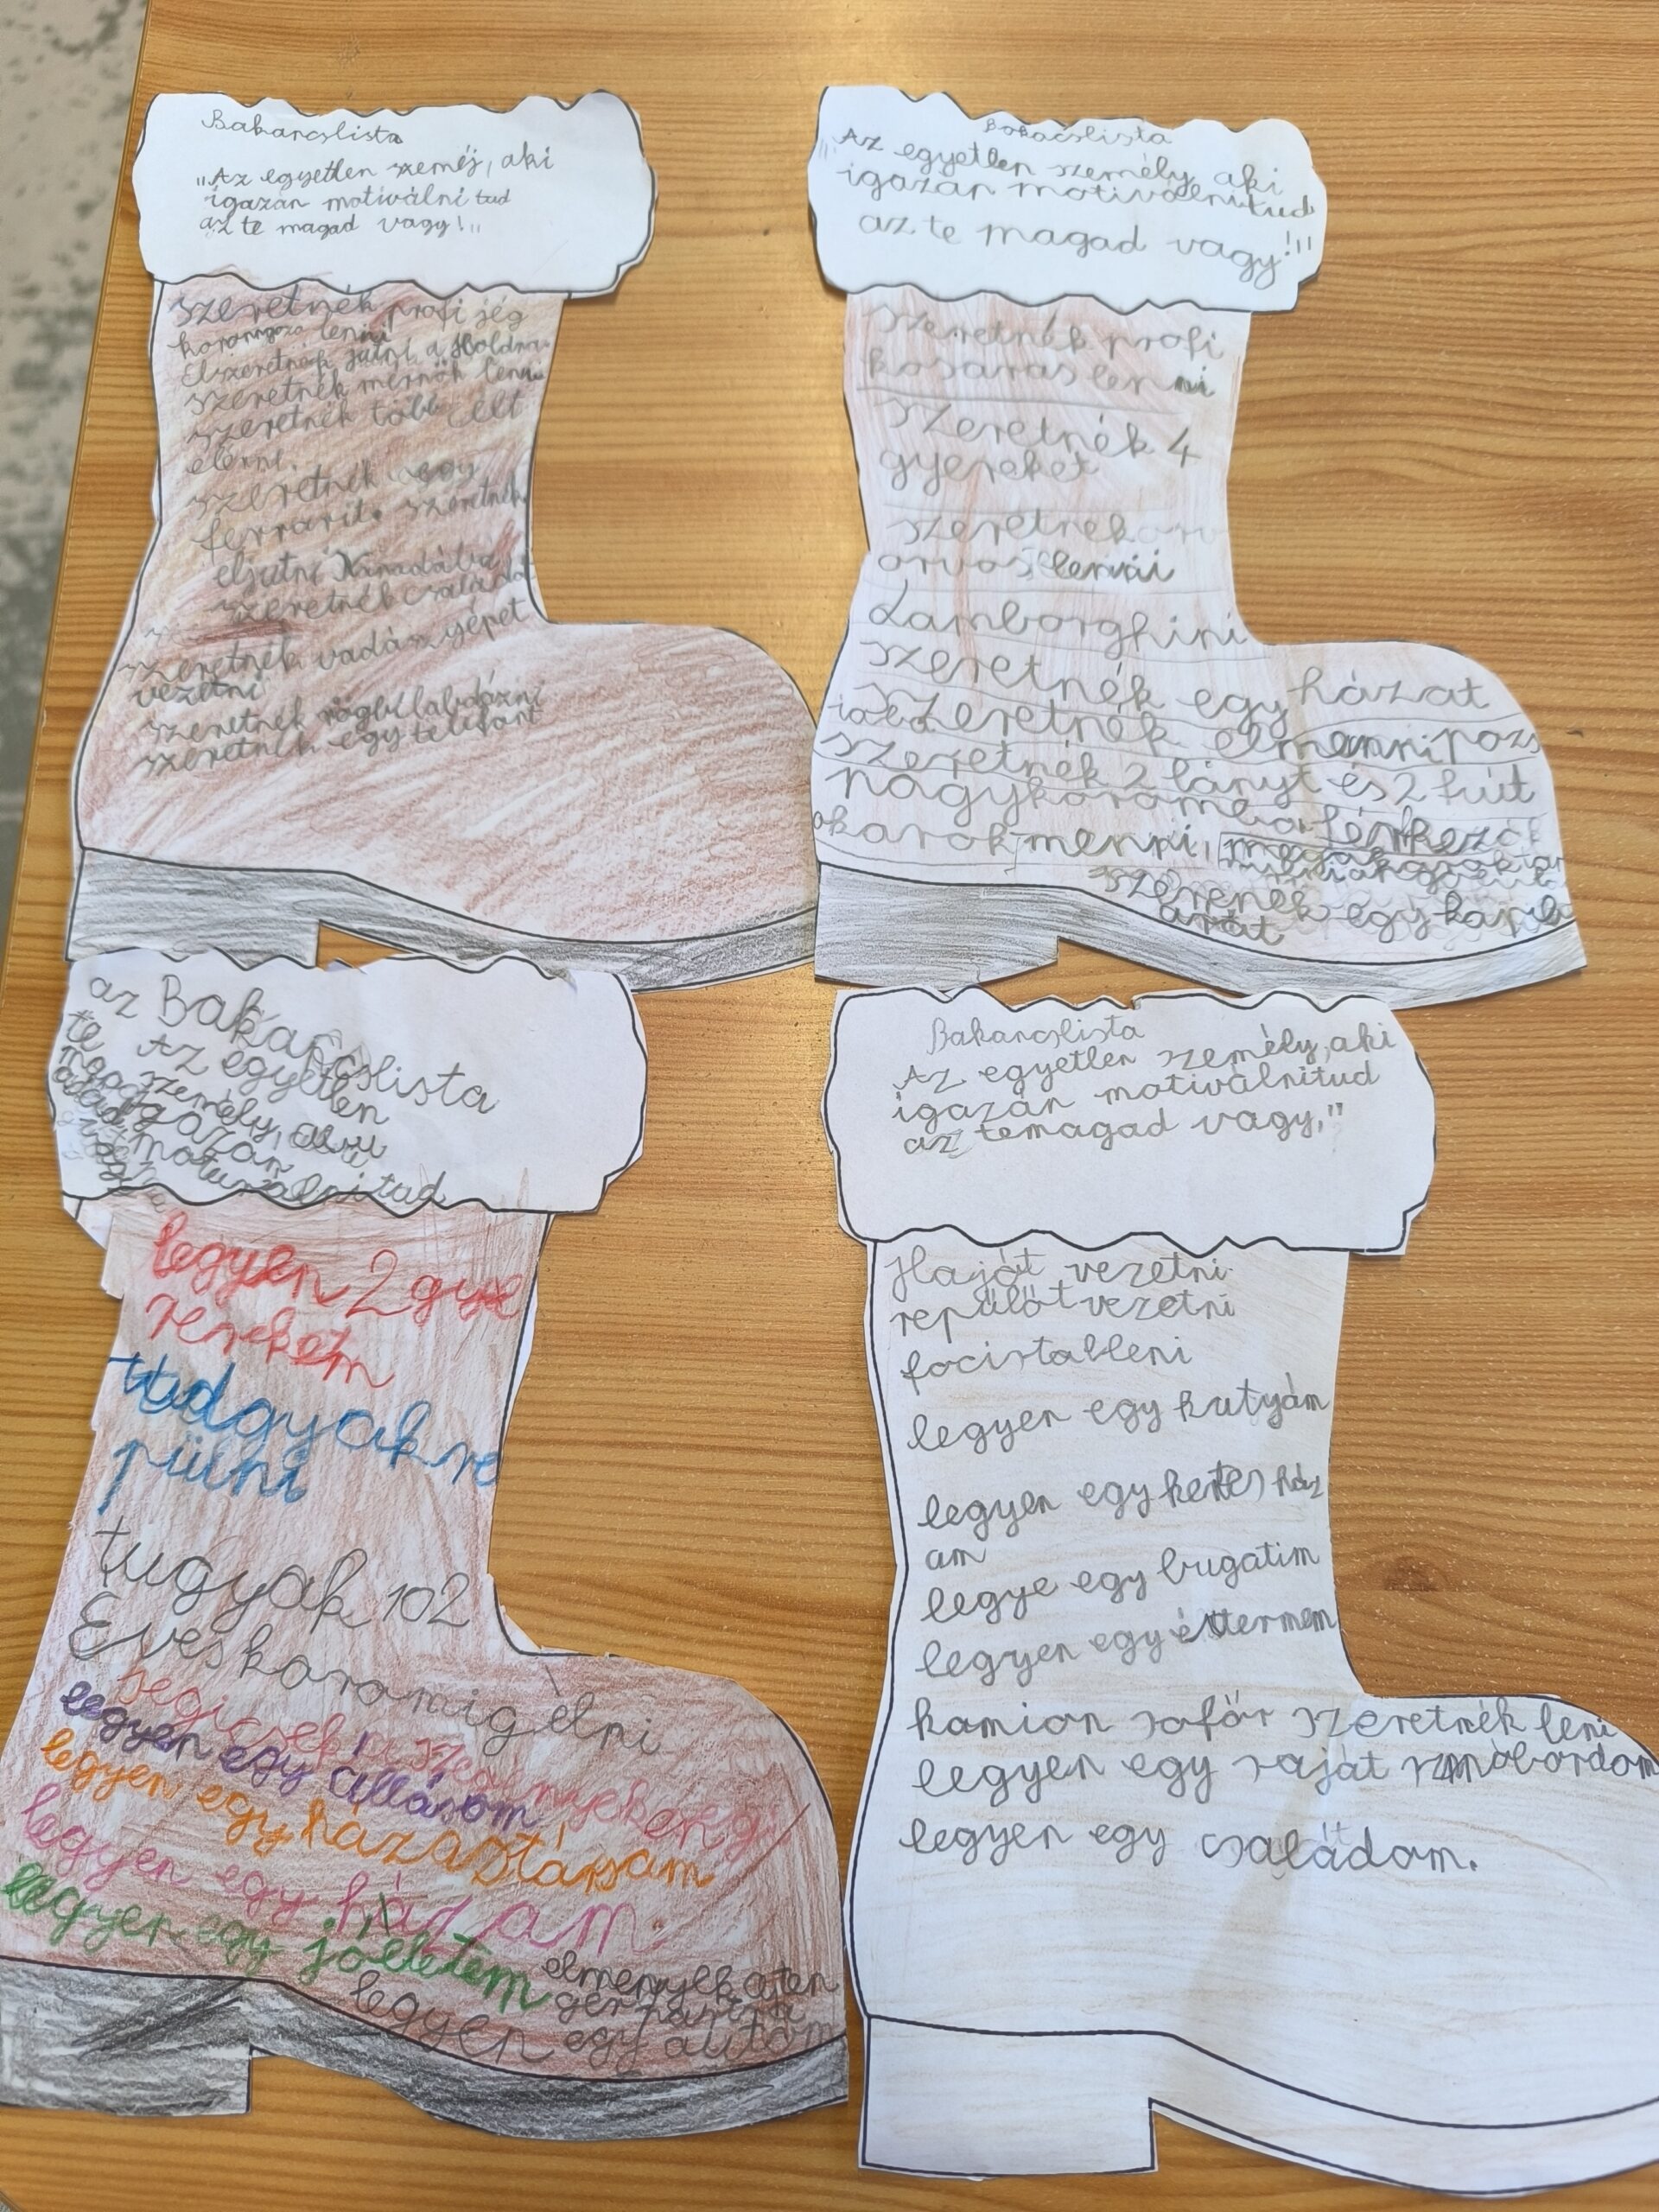 Bakancslista
„Az egyetlen szeméj, aki
igazán motiválni tud
az te magad vagy!"
szeretnék profi jég
korongozó lenni
Elszeretnék jutni a Holdra.
szeretnék mérnök lenni.
szeretnék több célt
elérni.
szeretnék egy
ferrarit. szeretnék
eljutni Kanadába
szeretnék családot
szeretnék vadászgépet
vezetni
szeretnék rögbilabdázni
szeretnék egy telefont
Bakacslista
„Az egyetlen személy aki
igazán motiválni tud
az te magad vagy!"
szeretnék profi
kosaras lenni
szeretnék 4
gyereket
szeretnék
orvos lenni
Lamborghini
szeretnék egy házat
szeretnék elmenni
szeretnék 2 lányt és 2 fiút
nagykoromba
akarok menni,
egy
az Bakancslista
te Az egyetlen
személy,
igazán
tud
legyen 2 gye
rerekem
tudgyak re
pülni
tugyak 102
Éves koromig élni
segicsek a szegényeken
legyen egy állásom
legyen egy házastársam
legyen egy ház am.
legyen egy jóéletem
elmenyek a ten
ger partra
legyen egy autóm
Bakancslista
Az egyetlen személy, aki
igazán motiválnitud
az temagad vagy,"
Haját vezetni
repülőt vezetni
focistableni
legyen egy kutyám
legyen egy kertes ház
am
legye egy bugatim
legyen egy éttermem
kamion sofőr szeretnék leni
legyen egy saját
legyen egy családom.